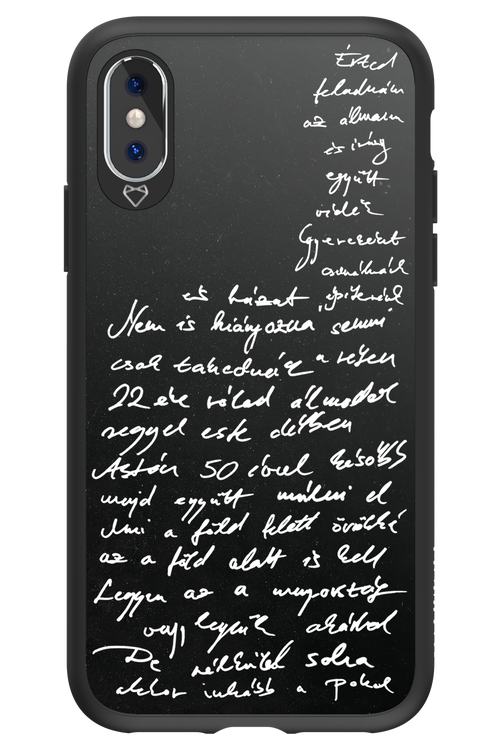 Érted
feladnám
az álmaim
és irány
együtt
vidék
Gyerekeket
csinálnánk
és házat építenénk
Nem is hiányozna semmi
csak takednék a rétem
22 éve rólad álmodok
reggel este délben
Aztán 50 évvel később
majd együtt múlni el
Ami a föld felett örökké
az a föld alatt is kell
Legyen az a menyország
vagy legyünk akárhol
De nélküled soha
akkor inkább a Pokol